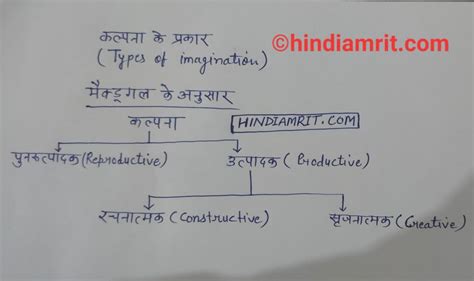 ©hindiamrit.com
कल्पना के प्रकार
(Types of imagination)
मैक्डूगल के अनुसार
कल्पना
HINDIAMRIT.COM
पुनरुत्पादक (Reproductive)
उत्पादक (Productive)
रचनात्मक (Constructive)
सृजनात्मक (Creative)